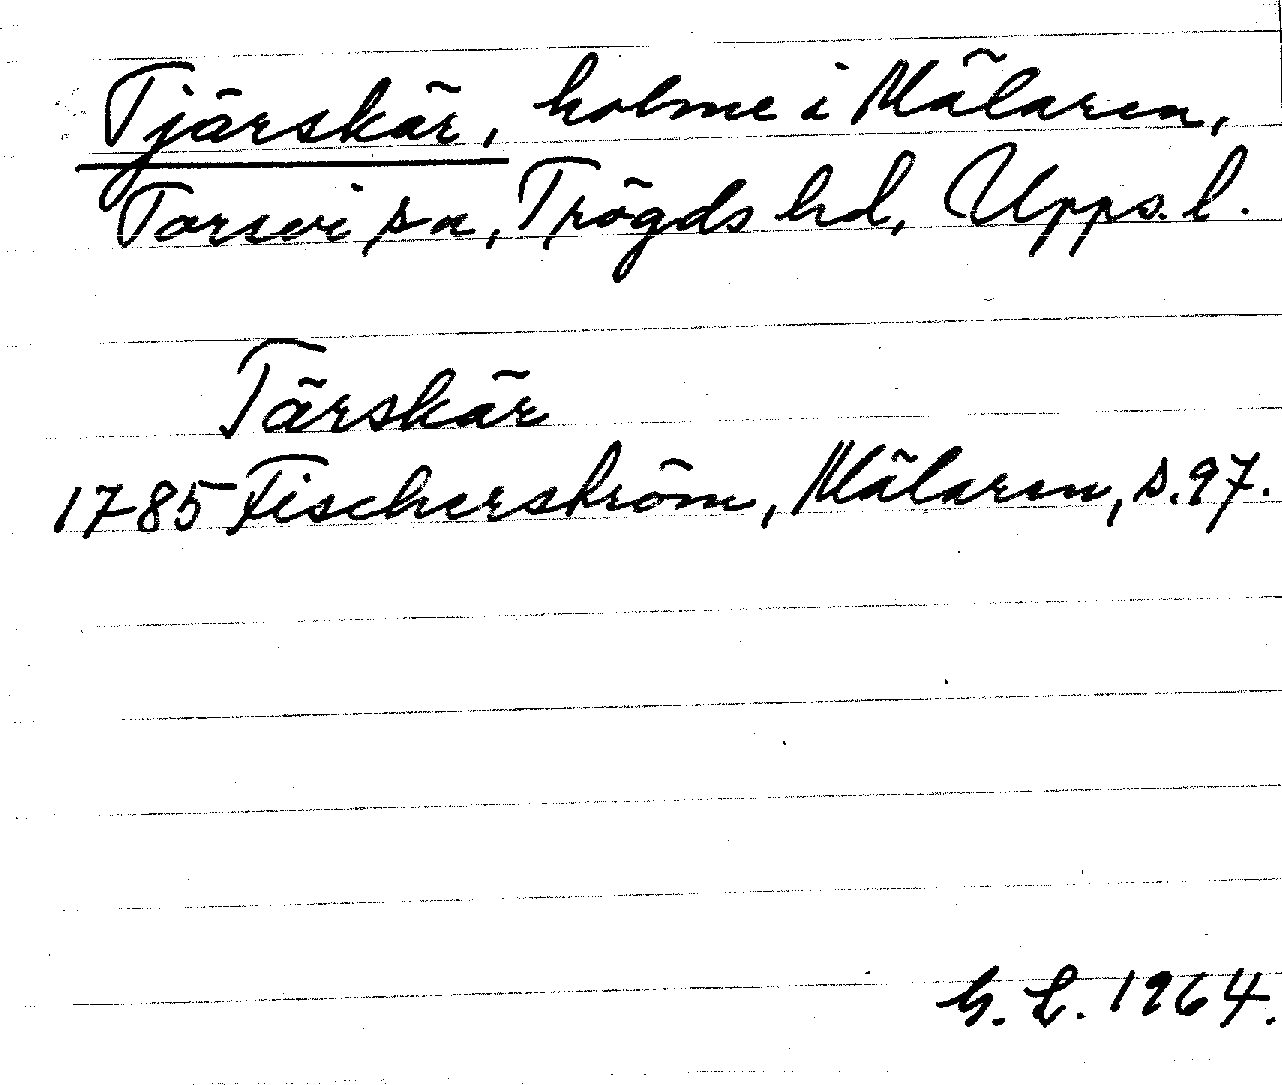 Tjärskär, holme i Mälaren,
Torsvi sn, Trögds hd, Upps. l.
Tärskär
1785 Fischerström, Mälaren, s. 97.
1964.